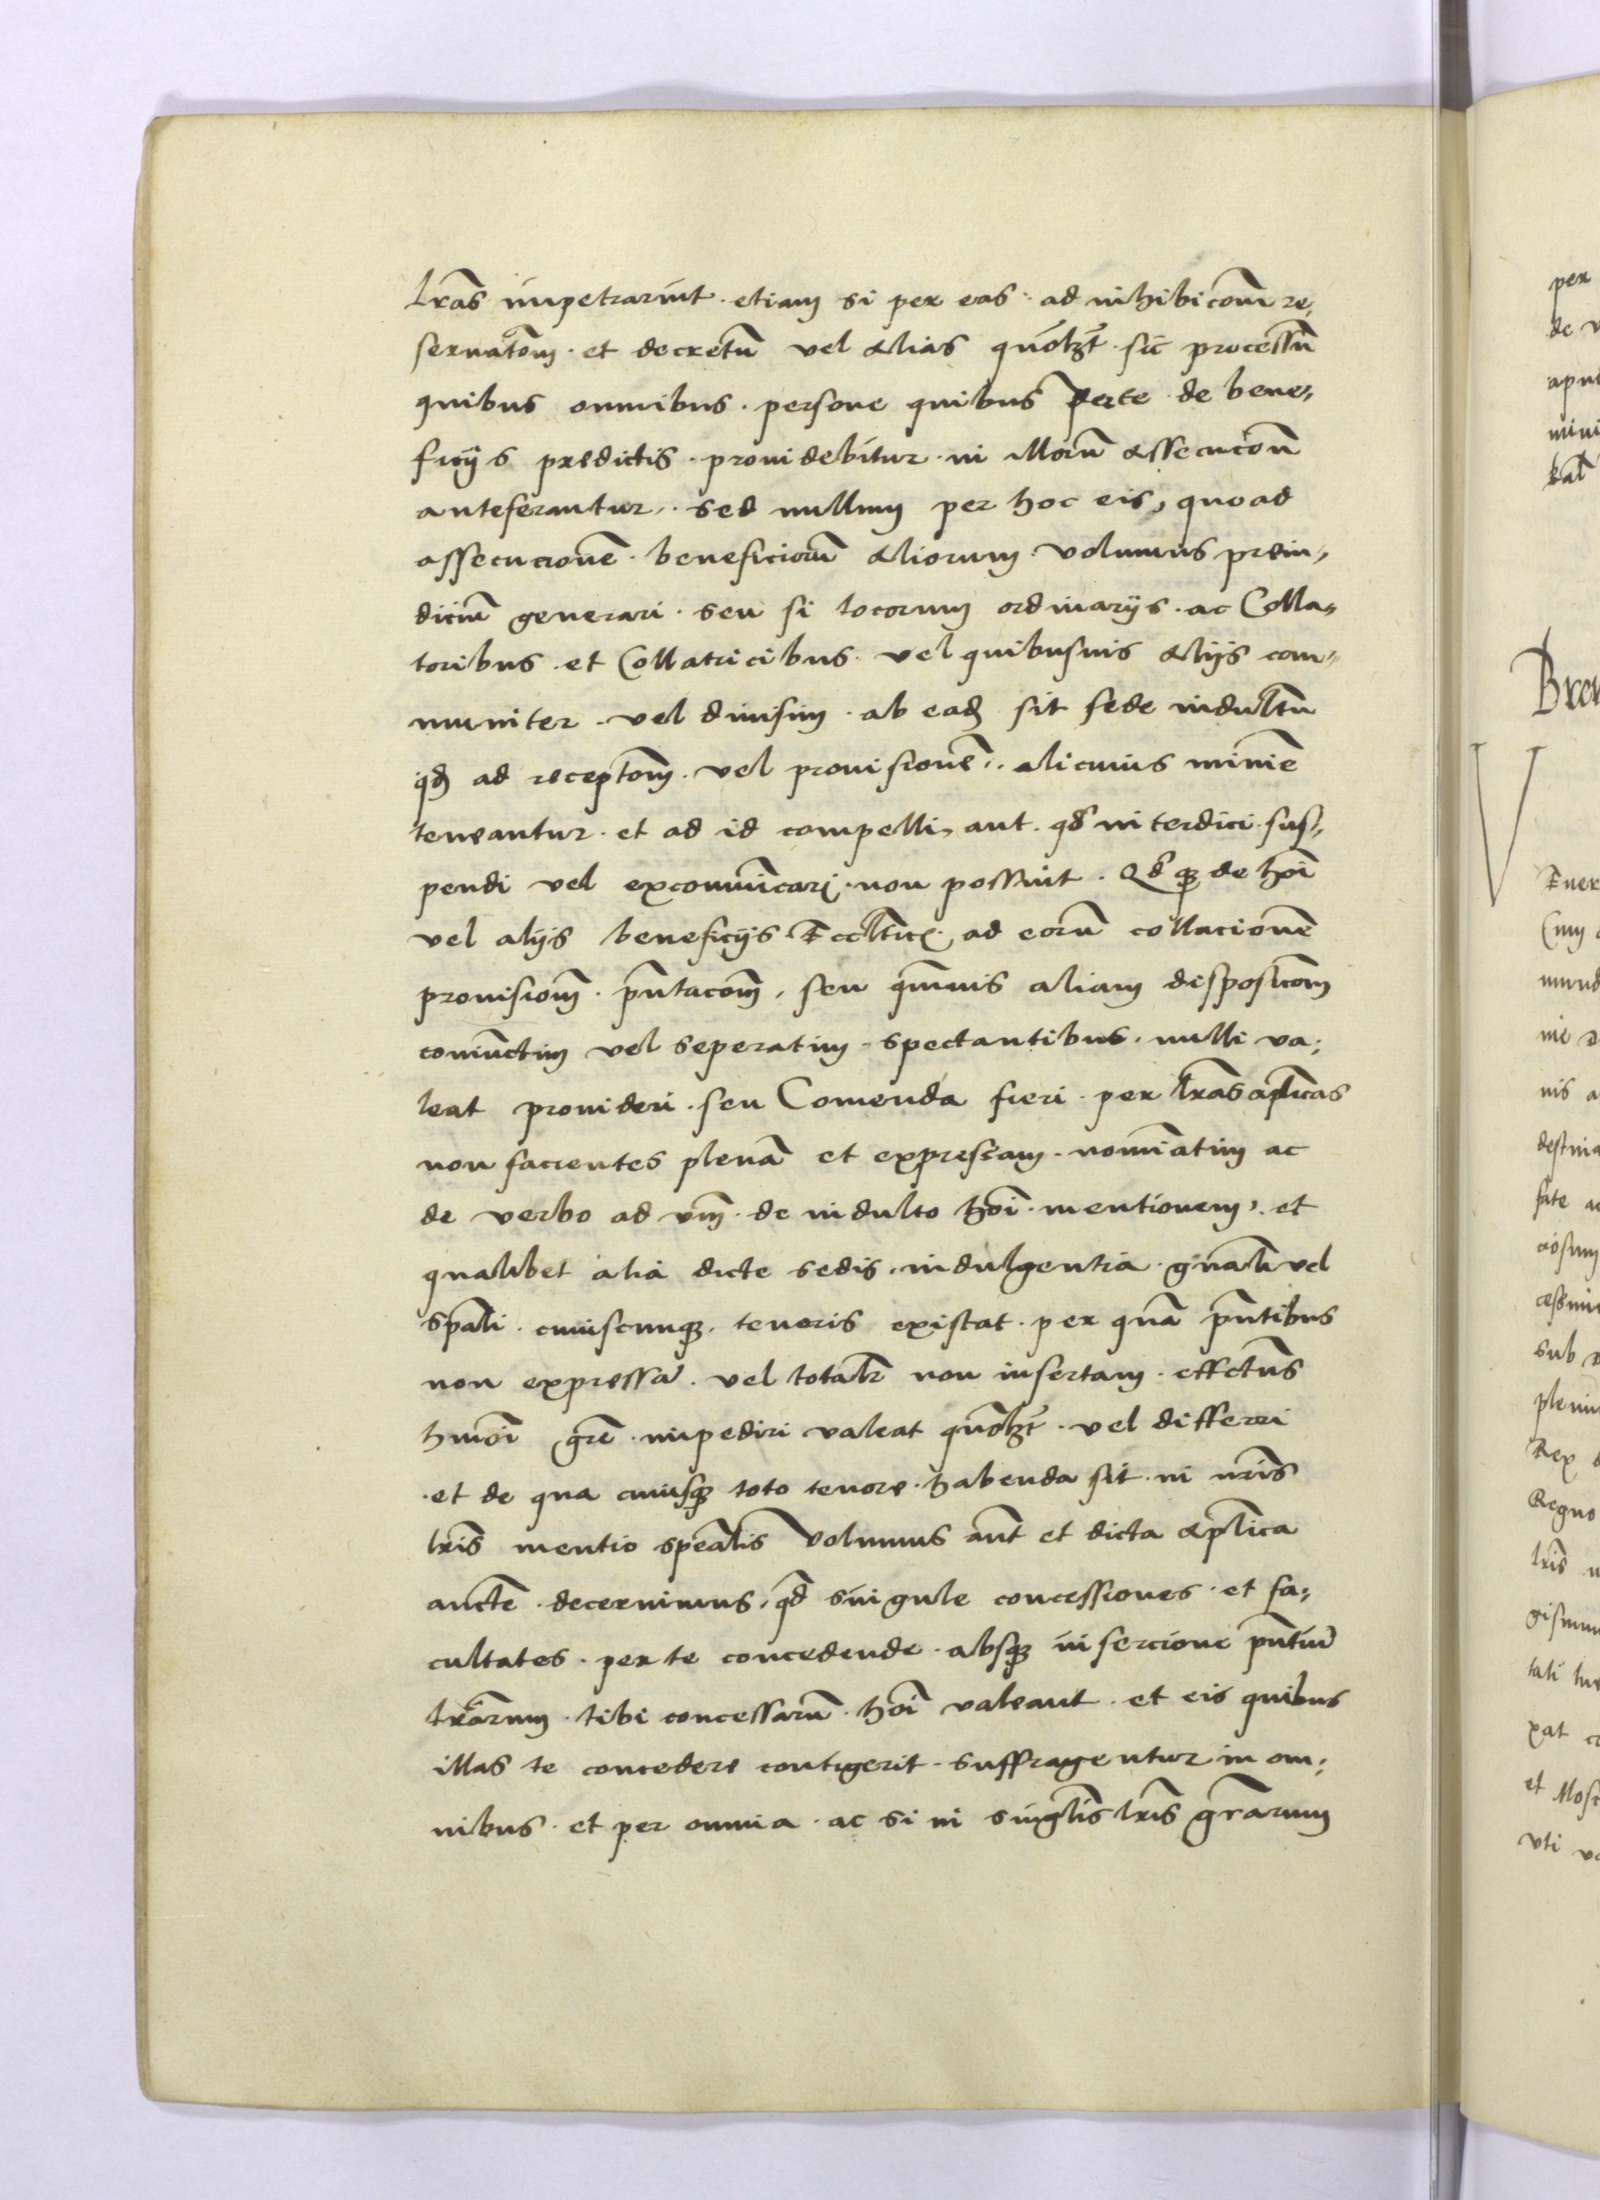 lr̃as impetrarint · etiam si per eas · ad inhibicõem re,
seruatõem · et decretũ vel alias quõlz̃t · sit processũ
quibus omnibus · persone quibus perte de bene,
ficijs predictis · prouidebitur · in illorũ assecucõem
anteferantur · sed nullum per hoc eis, quoad
assecucionẽ · beneficiorũ aliorum · volumus preiu,
diciũ generari · seu si locorum ordinarijs · ac Colla,
toribus · et Collatricibus · vel quibusuis alijs com,
muniter · vel diuisim · ab eadẽ sit sede indultũ
qd̃ ad receptõem · vel prouisionẽ · alicuius minĩe
teneantur · et ad id compelli, aut · qd̃ interdici · sus,
pendi vel excom̃unicari · non possint · Qd̃ qz de hõi
vel alijs beneficijs Eccl̃ticis · ad eorũ collacionẽ
prouisiõem · pñtacõem, seu qm̃uis aliam disposicõem
coniũctim vel seperatim · spectantibus · nulli va,
leat prouideri · seu Comenda fieri · per lr̃as apl̃icas
non facientes plenã et expressam · nomĩatim ac
de verbo ad vm̃ · de indulto hõi · mentionem · et
qualibet alia dicte sedis · indulgentia · gñali vel
sp̃ali · cuiuscunqz · tenoris existat · per quã pñtibus
non expressã · vel totalr̃ non insertam · effctũs
hmõi gr̃e · impediri valeat quõlz̃t · vel differri
· et de qua cuiusqz toto tenore · habenda sit · in nr̃is
lr̃is mentio sp̃ealis Volumus aũt et dicta apl̃ica
aucte · decernimus, qd̃ singule concessiones · et fa,
cultates · per te concedende · absqz insercione pñtiũ
lr̃arum · tibi concessarũ · hõi valeant · et eis quibus
illas te concedere contigerit · suffragentur in om,
nibus · et per omnia · ac si in singl̃is lr̃is gr̃arum
per
de
apu
mini
kal
Breu
V
Rex
Regno
lr̃is
sub
et Mosc
vti